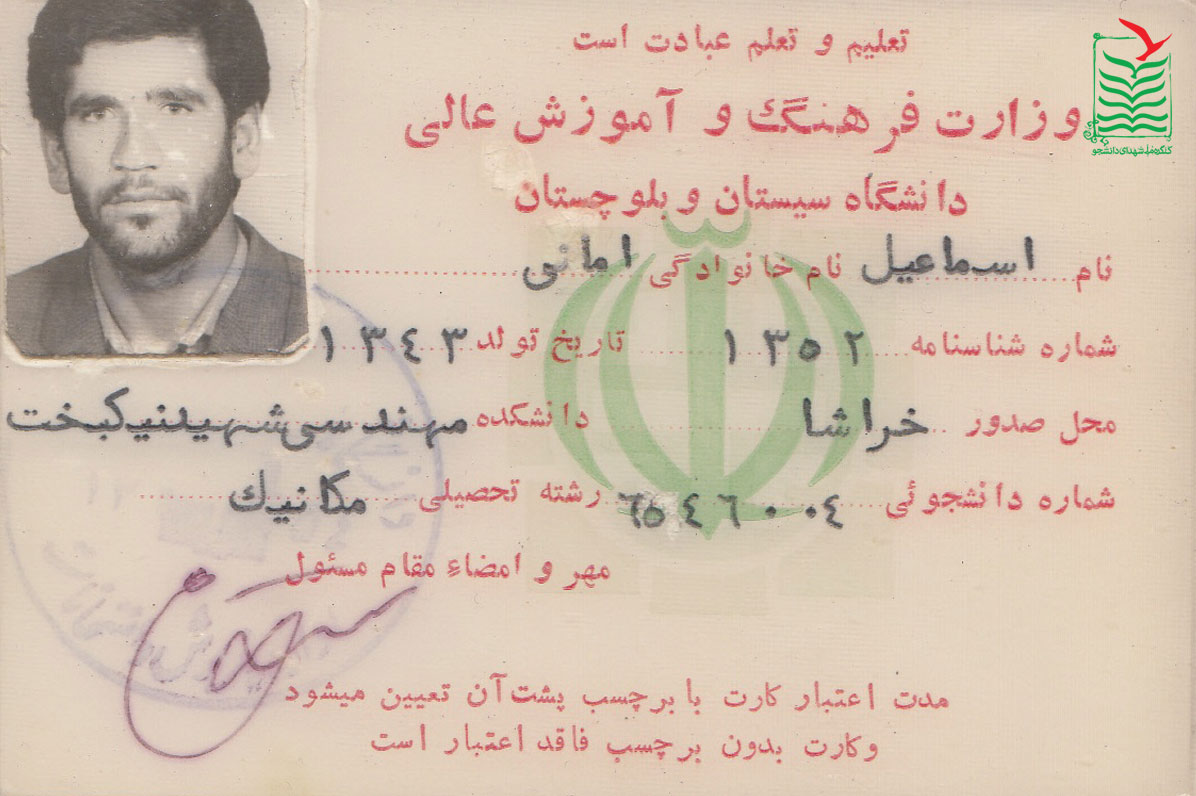 تعلیم و تعلم عبادت است
وزارت فرهنگ و آموزش عالی
دانشگاه سیستان و بلوچستان
نام اسماعیل نام خانوادگی امانی
شماره شناسنامه ۱۳۵۲ تاریخ تولد ۱۳۴۳
محل صدور خراشا دانشکده مهندسی شهید نیکبخت
شماره دانشجوئی ۶۵۴۶۰۰۴ رشته تحصیلی مکانیک
مهر و امضاء مقام مسئول
مدت اعتبار کارت با برچسب پشت آن تعیین میشود
و کارت بدون برچسب فاقد اعتبار است
شهدای دانشجو